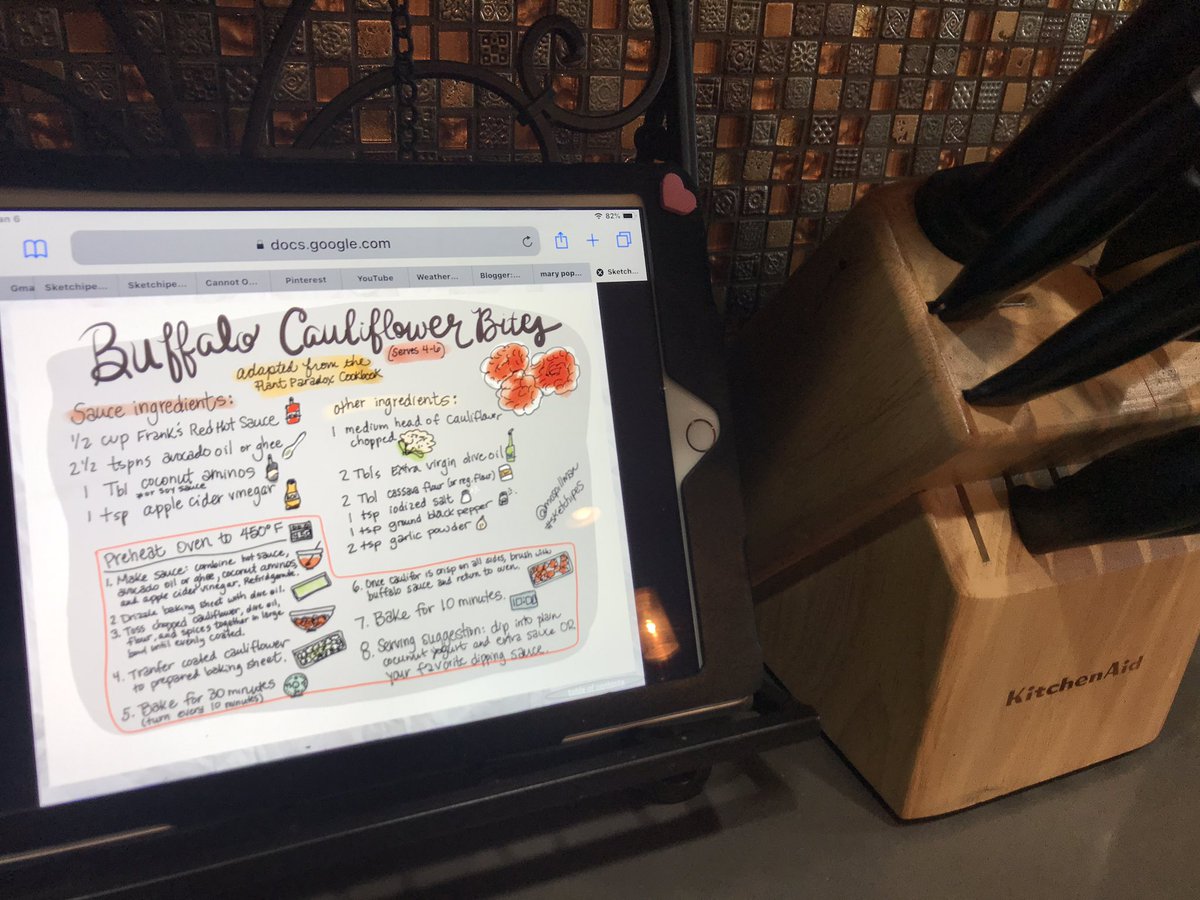 an 6
82%
docs.google.com
Gma
Sketchipe...
Sketchipe...
Cannot O...
Pinterest
YouTube
Weather...
Blogger:...
mary pop...
Sketch...
Buffalo Cauliflower Bites
adapted from the
Plant Paradox Cookbook
(Serves 4-6)
Sauce ingredients:
1/2 cup Frank's RedHot Sauce
2 1/2 tspns avocado oil or ghee
1 Tbl coconut aminos
*or soy sauce
1 tsp apple cider vinegar
other ingredients:
1 medium head of cauliflower
chopped
2 Tbls Extra virgin olive oil
2 Tbl cassava flour (or reg. flour)
1 tsp iodized salt
1 tsp ground black pepper
2 tsp garlic powder
@mospillman
#sketchipes
Preheat oven to 450°F
1. Make sauce: combine hot sauce,
avocado oil or ghee, coconut aminos,
and apple cider vinegar. Refridgerate.
2 Drizzle baking sheet with olive oil.
3. Toss chopped cauliflower, olive oil,
flour, and spices together in large
bowl until evenly coated.
4. Tranfer coated cauliflower
to prepared baking sheet.
5. Bake for 30 minutes
(turn every 10 minutes)
6. Once califlor is crisp on all sides, brush with
buffalo sauce and return to oven.
7. Bake for 10 minutes.
10:00
8. Serving suggestion: dip into plain
coconut yogurt and extra sauce OR
your favorite dipping sauce.
table of contents
KitchenAid